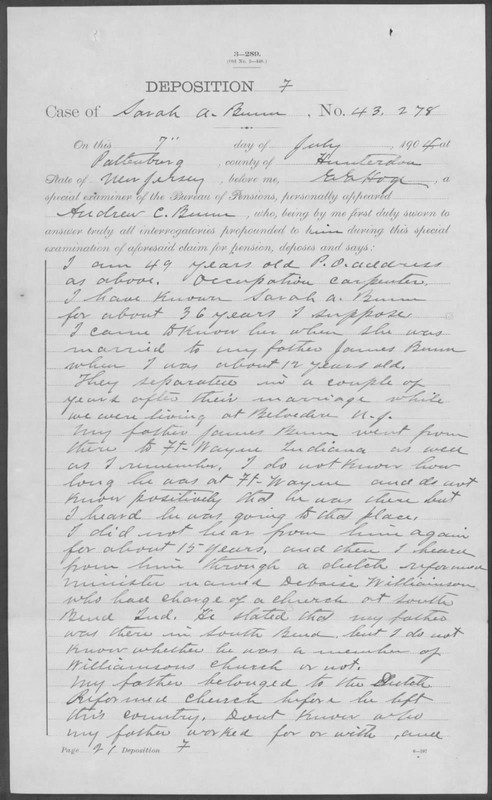 3—289.
(Old No. 3—446.)
DEPOSITION 7
Case of Sarah A. Bunn, No. 43,278
On this 7" day of July, 1904 at
Pattenburg, county of Hunterdon
State of New Jersey, before me, E. G. Hoge, a
special examiner of the Bureau of Pensions, personally appeared
Andrew C. Bunn, who, being by me first duly sworn to
answer truly all interrogatories propounded to him during this special
examination of aforesaid claim for pension, deposes and says:
I am 49 years old P.O. address
as above. Occupation carpenter.
I have known Sarah A. Bunn
for about 36 years I suppose
I came to know her when she was
married to my father James Bunn
when I was about 12 years old.
They separated in a couple of
years after their marriage while
we were living at Belvedere N.J.
My father James Bunn went from
there to Ft-Wayne Indiana as well
as I remember. I do not know how
long he was at Ft-Wayne and do not
know positively that he was there but
I heard he was going to that place.
I did not hear from him again
for about 15 years, and then I heard
from him through a dutch reformed
minister named Deboise Williamson
who had charge of a church at South
Bend Ind. He stated that my father
was there in South Bend, but I do not
know whether he was a member of
Williamsons church or not.
My father belonged to the Dutch
Reformed church before he left
this country. Dont know who
my father worked for or with, and
Page 21 Deposition 7